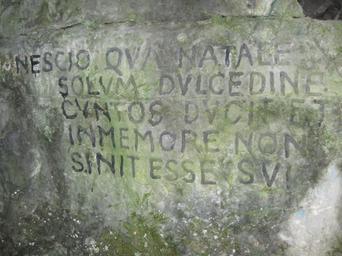 NESCIO QVA NATALE
SOLVM DVLCEDINE
CVNTOS DVCIT ET
INMEMORE NON
SINIT ESSE SVI